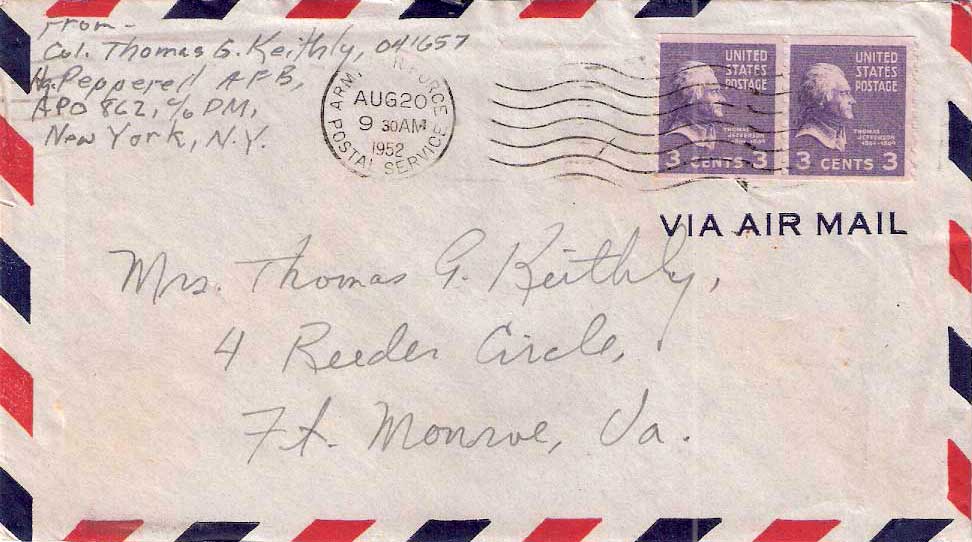 From-
Col. Thomas G. Keithly, 041657
Hq. Pepperell AFB,
APO 862, c/o PM,
New York, N.Y.
ARMY AIR FORCE
AUG 20
9 30AM
1952
POSTAL SERVICE
UNITED STATES POSTAGE
THOMAS JEFFERSON
3 CENTS 3
UNITED STATES POSTAGE
THOMAS JEFFERSON
3 CENTS 3
VIA AIR MAIL
Mrs. Thomas G. Keithly,
4 Reeder Circle,
Ft. Monroe, Va.